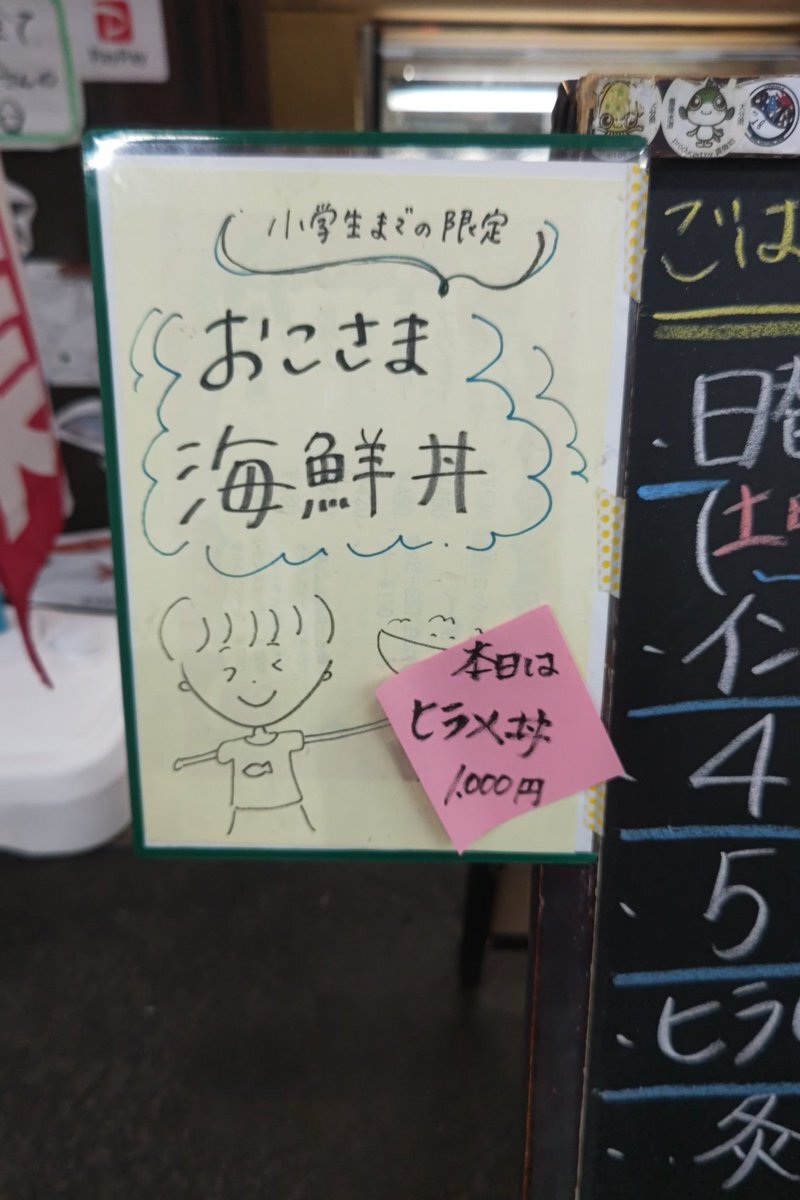 小学生までの限定
おこさま
海鮮丼
本日は
ヒラメ丼
1,000円
PayPay
ごは
日
(土
イン
4
5
ヒラ
炙